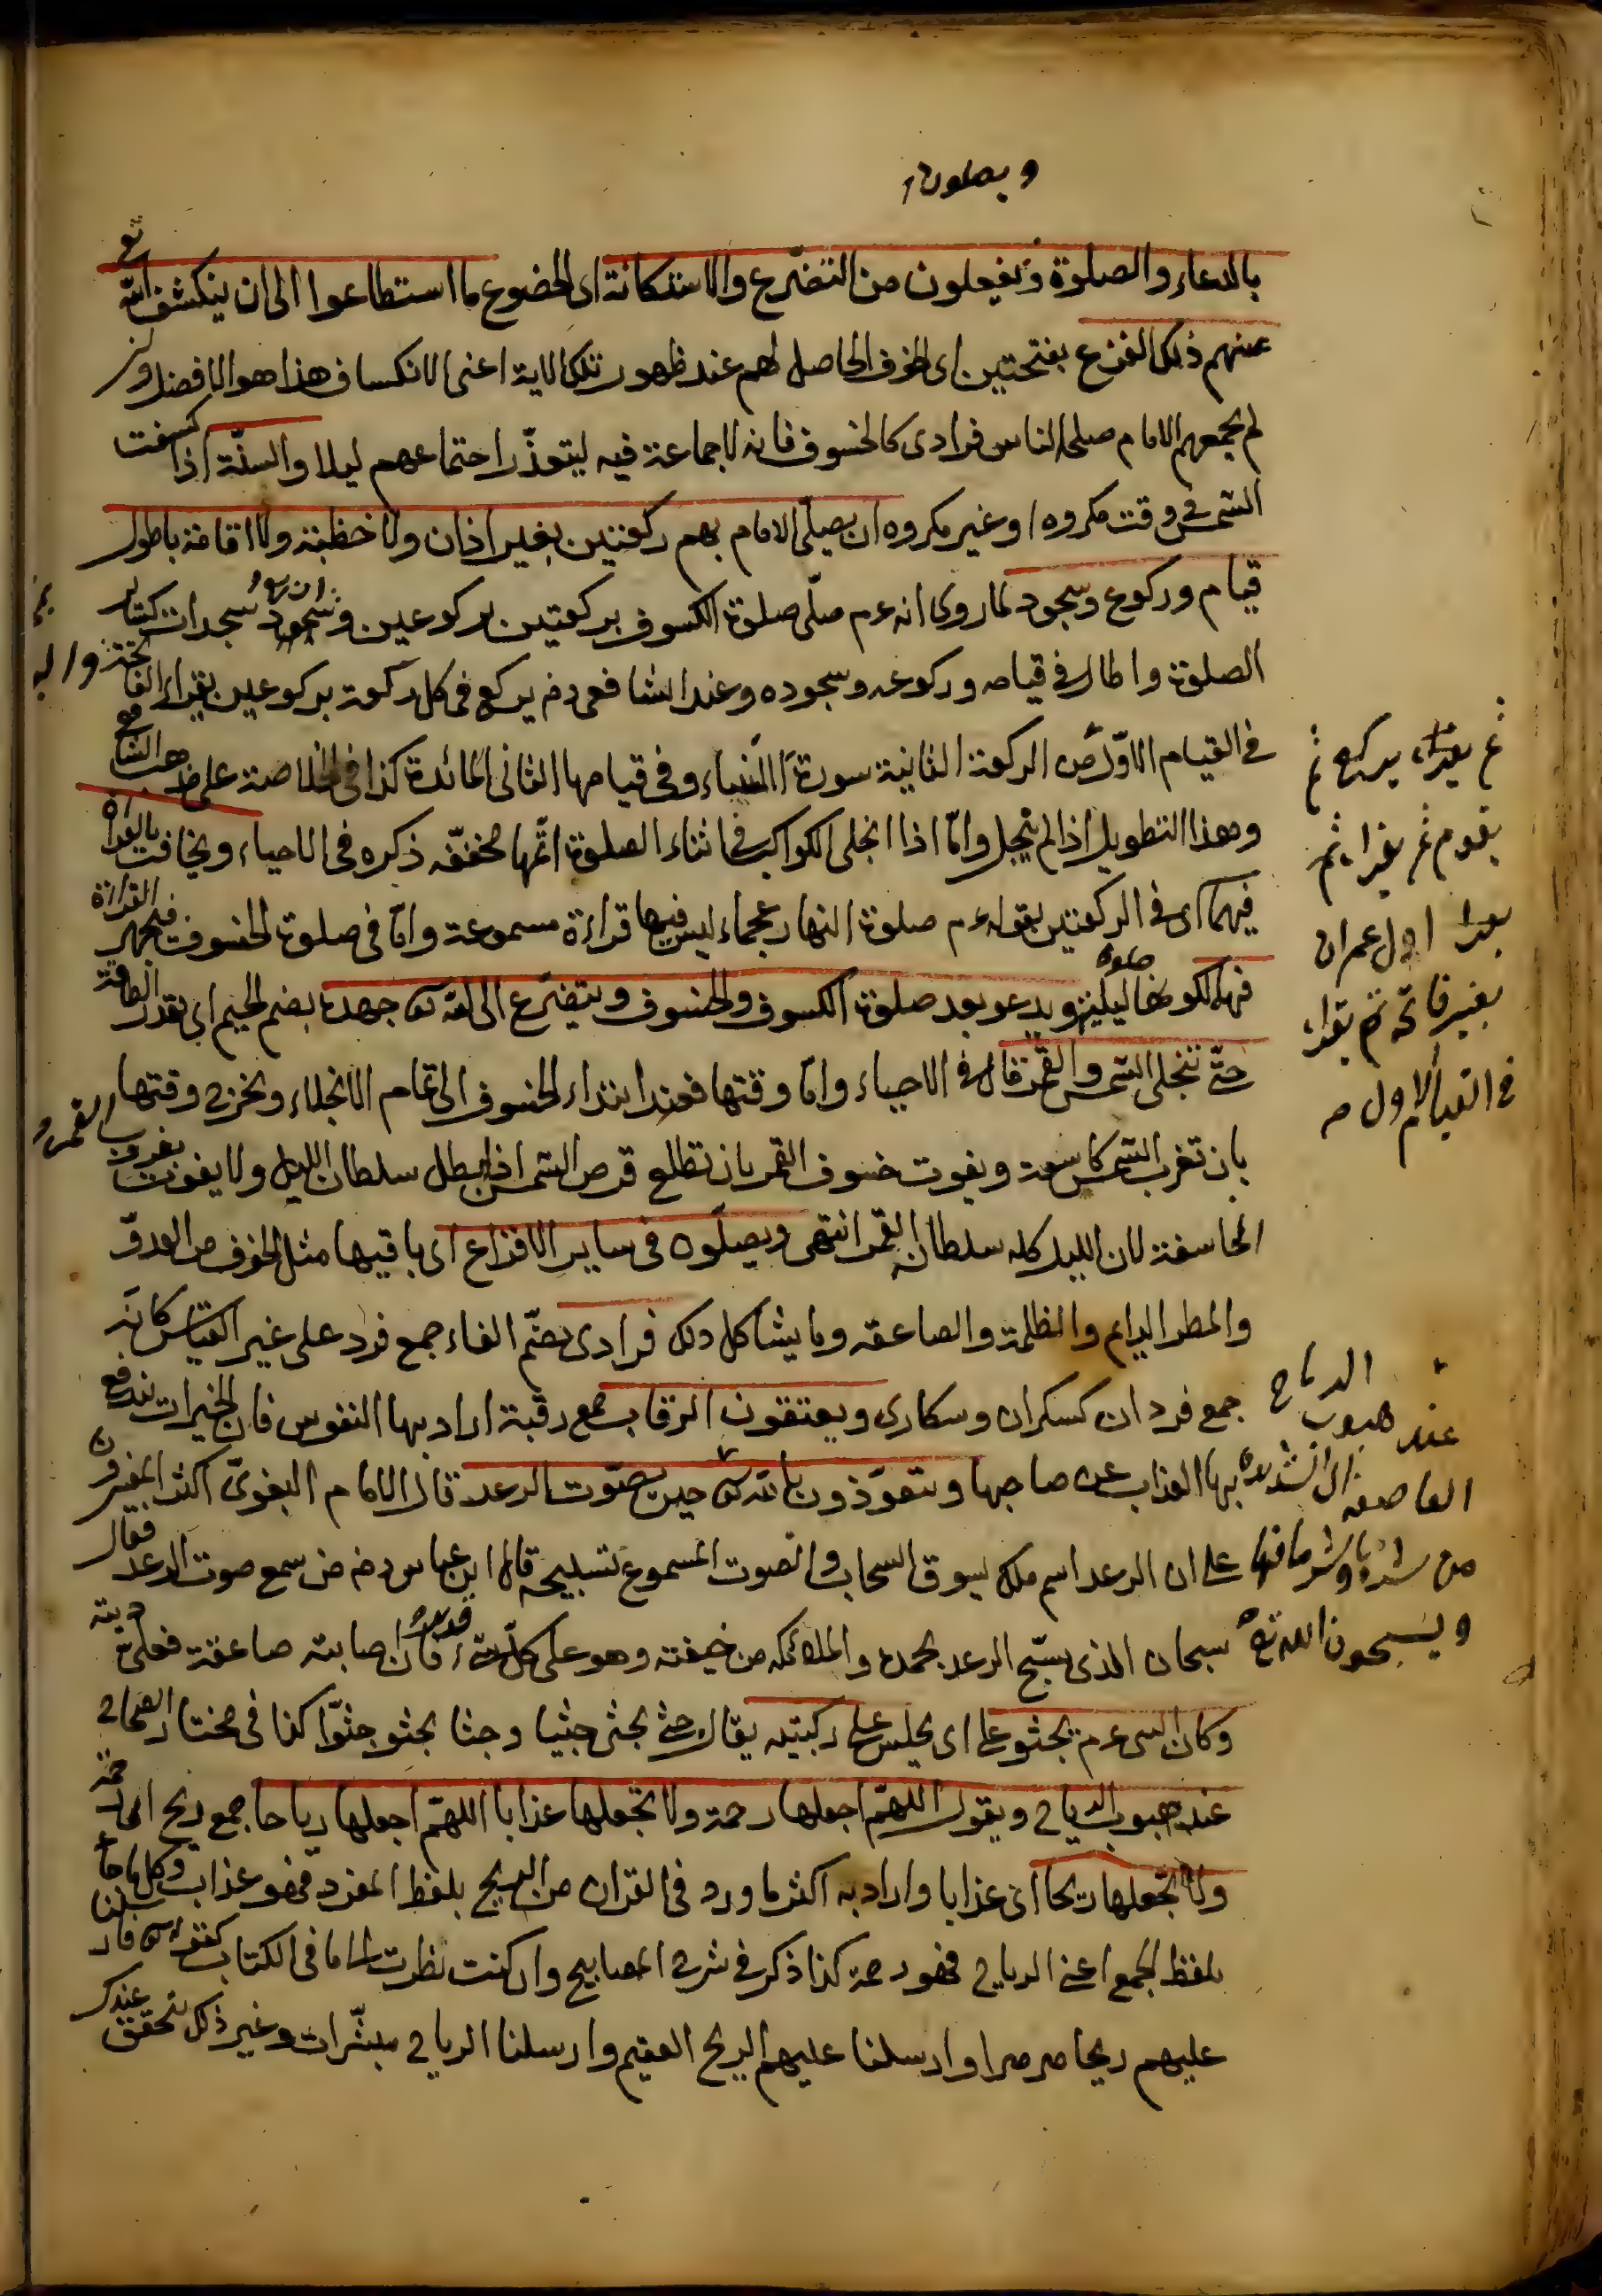 ويصلون
بالدعاء والصلوة ويفعلون من التضرّع والاستكانة اى الخضوع ما استطاعوا الى ان ينكشف الله تع
عنهم ذلك الفزع بفتحتين اى الخوف الحاصل لهم عند ظهور تلك الاية اعنى الانكساف هذا هو الافضل وان
لم يجمعهم الامام صلى الناس فرادى كالخسوف فانه لا جماعة فيه لتعذّر اجتماعهم ليلا والسنّة اذا كسفت
الشمس فى وقت مكروه او غير مكروه ان يصلّى الامام بهم ركعتين بغير اذان ولا خطبة ولا اقامة باطول
قيام وركوع وسجود لما روى انه عم صلّى صلوة الكسوف بركعتين بركوعين و سجدات كساير
الصلوة واطال فى قيامه وركوعه وسجوده وعند الشافعى رض يركع فى كل ركعة بركوعين يقراء الفاتحة
فى القيام الاوّل من الركعة الثانية سورة النساء وفى قيامها الثانى المائدة كذا فى الخلاصة على مذهب الشافعى
وهذا التطويل اذا لم ينجل وامّا اذا انجلى الكواكب فى اثناء الصلوة اتمّها مخففه ذكره فى الاحياء ويخافت بالقراءة
فيهما اى فى الركعتين بقوله عم صلوة النهار عجماء ليس فيها قراءة مسموعة وامّا فى صلوة الخسوف فيجهر القراءة
فيها لكونها صلوة ليلية ويدعو بعد صلوة الكسوف والخسوف ويتضرّع الى الله تع جهده بضم الجيم اى بقدر الطاقة
حتّى تنجلى الشمس والقمر قال فى الاحياء وامّا وقتها فعند ابتداء الخسوف الى تمام الانجلاء ويخرج وقتها
بان تغرب الشمس كاسفة ويفوت خسوف القمر بان تطلع قرص الشمس اذ يبطل سلطان الليل ولا يفوت بغروب القمر
الخاسفة لان الليل كله سلطان القمر انتهى ويصلّون فى ساير الافزاع اى باقيها مثل الخوف من العدوّ
والمطر الدايم والظلمة والصاعقة وما يشاكل ذلك فرادى بضمّ الفاء جمع فرد على غير القياس كانه
جمع فردان كسكران وسكارى ويعتقون الرقاب جمع رقبة اراد بها النفوس فان الخيرات تدفع
بها العذاب عن صاحبها ويتعوّذون بالله تع حين يصوّت الرعد قال الامام البغوىّ اكثر المفسرون
على ان الرعد اسم ملك يسوق السحاب والصوت المسموع تسبيحه قال ابن عباس رض من سمع صوت الرعد فقال
سبحان الذى يسبّح الرعد بحمده والملائكة من خيفته وهو على كلّ شئ قدير فان اصابته صاعقة فعلىّ ديته
وكان النبى عم يجثو على اى يجلس على ركبتيه يقال جثى يجثى جثيا وجثا يجثو جثوّا كذا فى مختار الصحاح
عند هبوب الرياح ويقول اللهمّ اجعلها رحمة ولا تجعلها عذابا اللهمّ اجعلها رياحا جمع ريح اى رحمة
ولا تجعلها ريحا اى عذابا واراد به اكثر ما ورد فى القران من الريح بلفظ المفرد فهو عذاب وكل ما جاء
بلفظ الجمع اعنى الرياح فهو رحمة كذا ذكر فى شرح المصابيح وان كنت نظرت الى ما فى الكتاب كقوله تع فارسلنا
عليهم ريحا صرصرا وارسلنا عليهم الريح العقيم وارسلنا الرياح مبشّرات وغير ذلك تحقق عندك
ثم يقراء يركع ثم
يقوم ثم يقراء ثم
يقرا ال عمران
بغير فاتحة ثم يقراء
فى القيام الاول
عند هبوب الرياح
العاصفة اى الشديدة
من شرها وشر ما فيها
ويسبحون الله تع